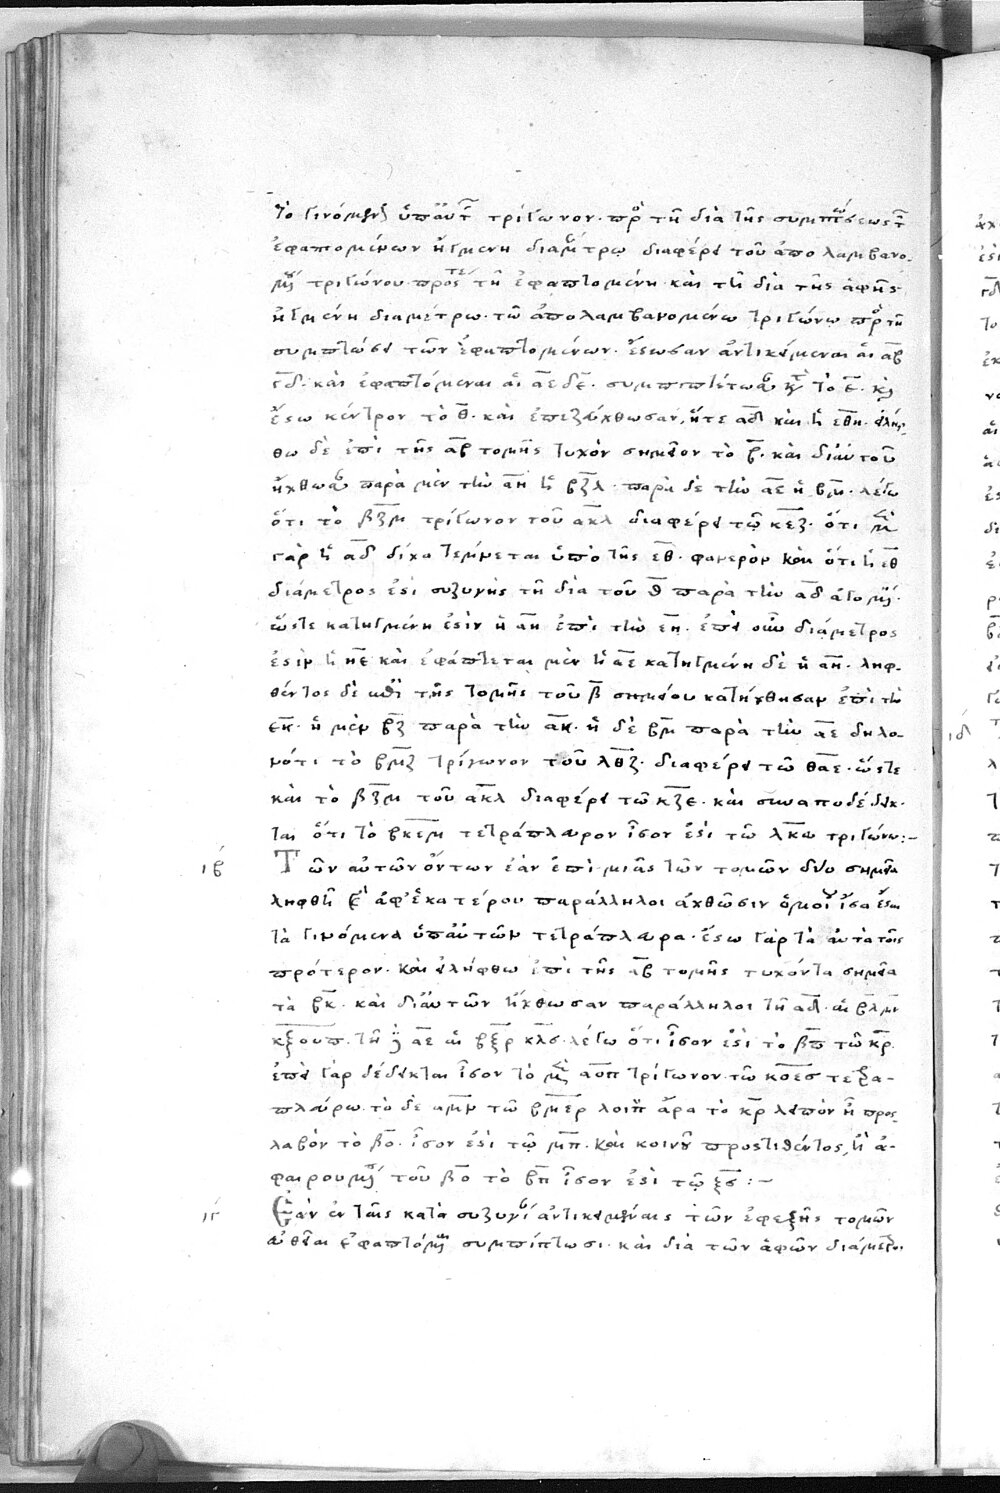 τὸ γινόμενον ὑπ' αὐτῶν τρίγωνον πρὸς τῆ διὰ τῆς συμπτώσεως τῶν
ἐφαπτομένων ἠγμένη διαμέτρω διαφέρει τοῦ ἀπολαμβανο-
μένου τριγώνου πρός τε τῆ ἐφαπτομένη καὶ τῆ διὰ τῆς ἁφῆς
ἠγμένη διαμέτρω τῶ ἀπολαμβανομένω τριγώνω πρὸς τῆ
συμπτώσει τῶν ἐφαπτομένων. ἔστωσαν ἀντικείμεναι αἱ αβ
γδ. καὶ ἐφαπτόμεναι αἱ αε δε. συμπιπτέτωσαν κατὰ τὸ ε. καὶ
ἔστω κέντρον τὸ θ. καὶ ἐπεζεύχθωσαν, ἥτε αδ καὶ ἡ εθη. εἰλήφ-
θω δὲ ἐπὶ τῆς αβ τομῆς τυχὸν σημεῖον τὸ β. καὶ δι' αὐτοῦ
ἤχθωσαν παρὰ μὲν τὴν αη ἡ βζλ. παρὰ δὲ τὴν αε ἡ βμ. λέγω
ὅτι τὸ βζμ τρίγωνον τοῦ ακλ διαφέρει τῶ κεζ. ὅτι μὲν
γὰρ ἡ αδ δίχα τέμνεται ὑπὸ τῆς εθ. φανερὸν καὶ ὅτι ἡ εθ
διάμετρος ἐστὶ συζυγὴς τῆ διὰ τοῦ θ παρὰ τὴν αδ ἀγομένη.
ὥστε κατηγμένη ἐστὶν ἡ αη ἐπὶ τὴν εη. ἐπεὶ οὖν διάμετρος
ἐστὶν ἡ ηε καὶ ἐφάπτεται μὲν ἡ αε κατηγμένη δὲ ἡ αη. ληφ-
θέντος δὲ ἐπὶ τῆς τομῆς τοῦ β σημείου κατήχθησαν ἐπὶ τὴν
εκ. ἡ μὲν βζ παρὰ τὴν ακ. ἡ δὲ βμ παρὰ τὴν αε δηλο-
νότι τὸ βμζ τρίγωνον τοῦ λθζ. διαφέρει τῶ θαε. ὥστε
καὶ τὸ βζμ τοῦ ακλ διαφέρει τῶ κζε. καὶ συναποδέδεικ-
ται ὅτι τὸ βκεμ τετράπλευρον ἴσον ἐστὶ τῶ λκα τριγώνω:-
ιβ Τῶν αὐτῶν ὄντων ἐὰν ἐπὶ μιᾶς τῶν τομῶν δύο σημεῖα
ληφθῆ καὶ ἀφ' ἑκατέρου παράλληλοι ἀχθῶσιν ὁμοίως ἴσα ἔσται
τὰ γινόμενα ὑπ' αὐτῶν τετράπλευρα. ἔστω γὰρ τὰ αὐτὰ τοῖς
πρότερον. καὶ εἰλήφθω ἐπὶ τῆς αβ τομῆς τυχόντα σημεῖα
τὰ βκ. καὶ δι' αὐτῶν ἤχθωσαν παράλληλοι τῆ αδ. αἱ βλμν
κξουπ. τῆ δὲ αε αἱ βξρ κλς. λέγω ὅτι ἴσον ἐστὶ τὸ βπ τῶ κρ.
ἐπεὶ γὰρ δέδεικται ἴσον τὸ μὲν αοπ τρίγωνον τῶ κοες τετρα-
πλεύρω. τὸ δὲ αμν τῶ βμερ λοιπὸν ἄρα τὸ κρ λεῖπον ἢ προς-
λαβὸν τὸ βο. ἴσον ἐστὶ τῶ μπ. καὶ κοινοῦ προστιθέντος, ἢ ἀ-
φαιρουμένου τοῦ βο τὸ βπ ἴσον ἐστὶ τῶ ξς:~
ιγ Ἐὰν ἐν ταῖς κατὰ συζυγίαν ἀντικειμέναις τῶν ἐφεξῆς τομῶν
εὐθεῖαι ἐφαπτόμεναι συμπίπτωσι. καὶ διὰ τῶν ἁφῶν διάμετροι